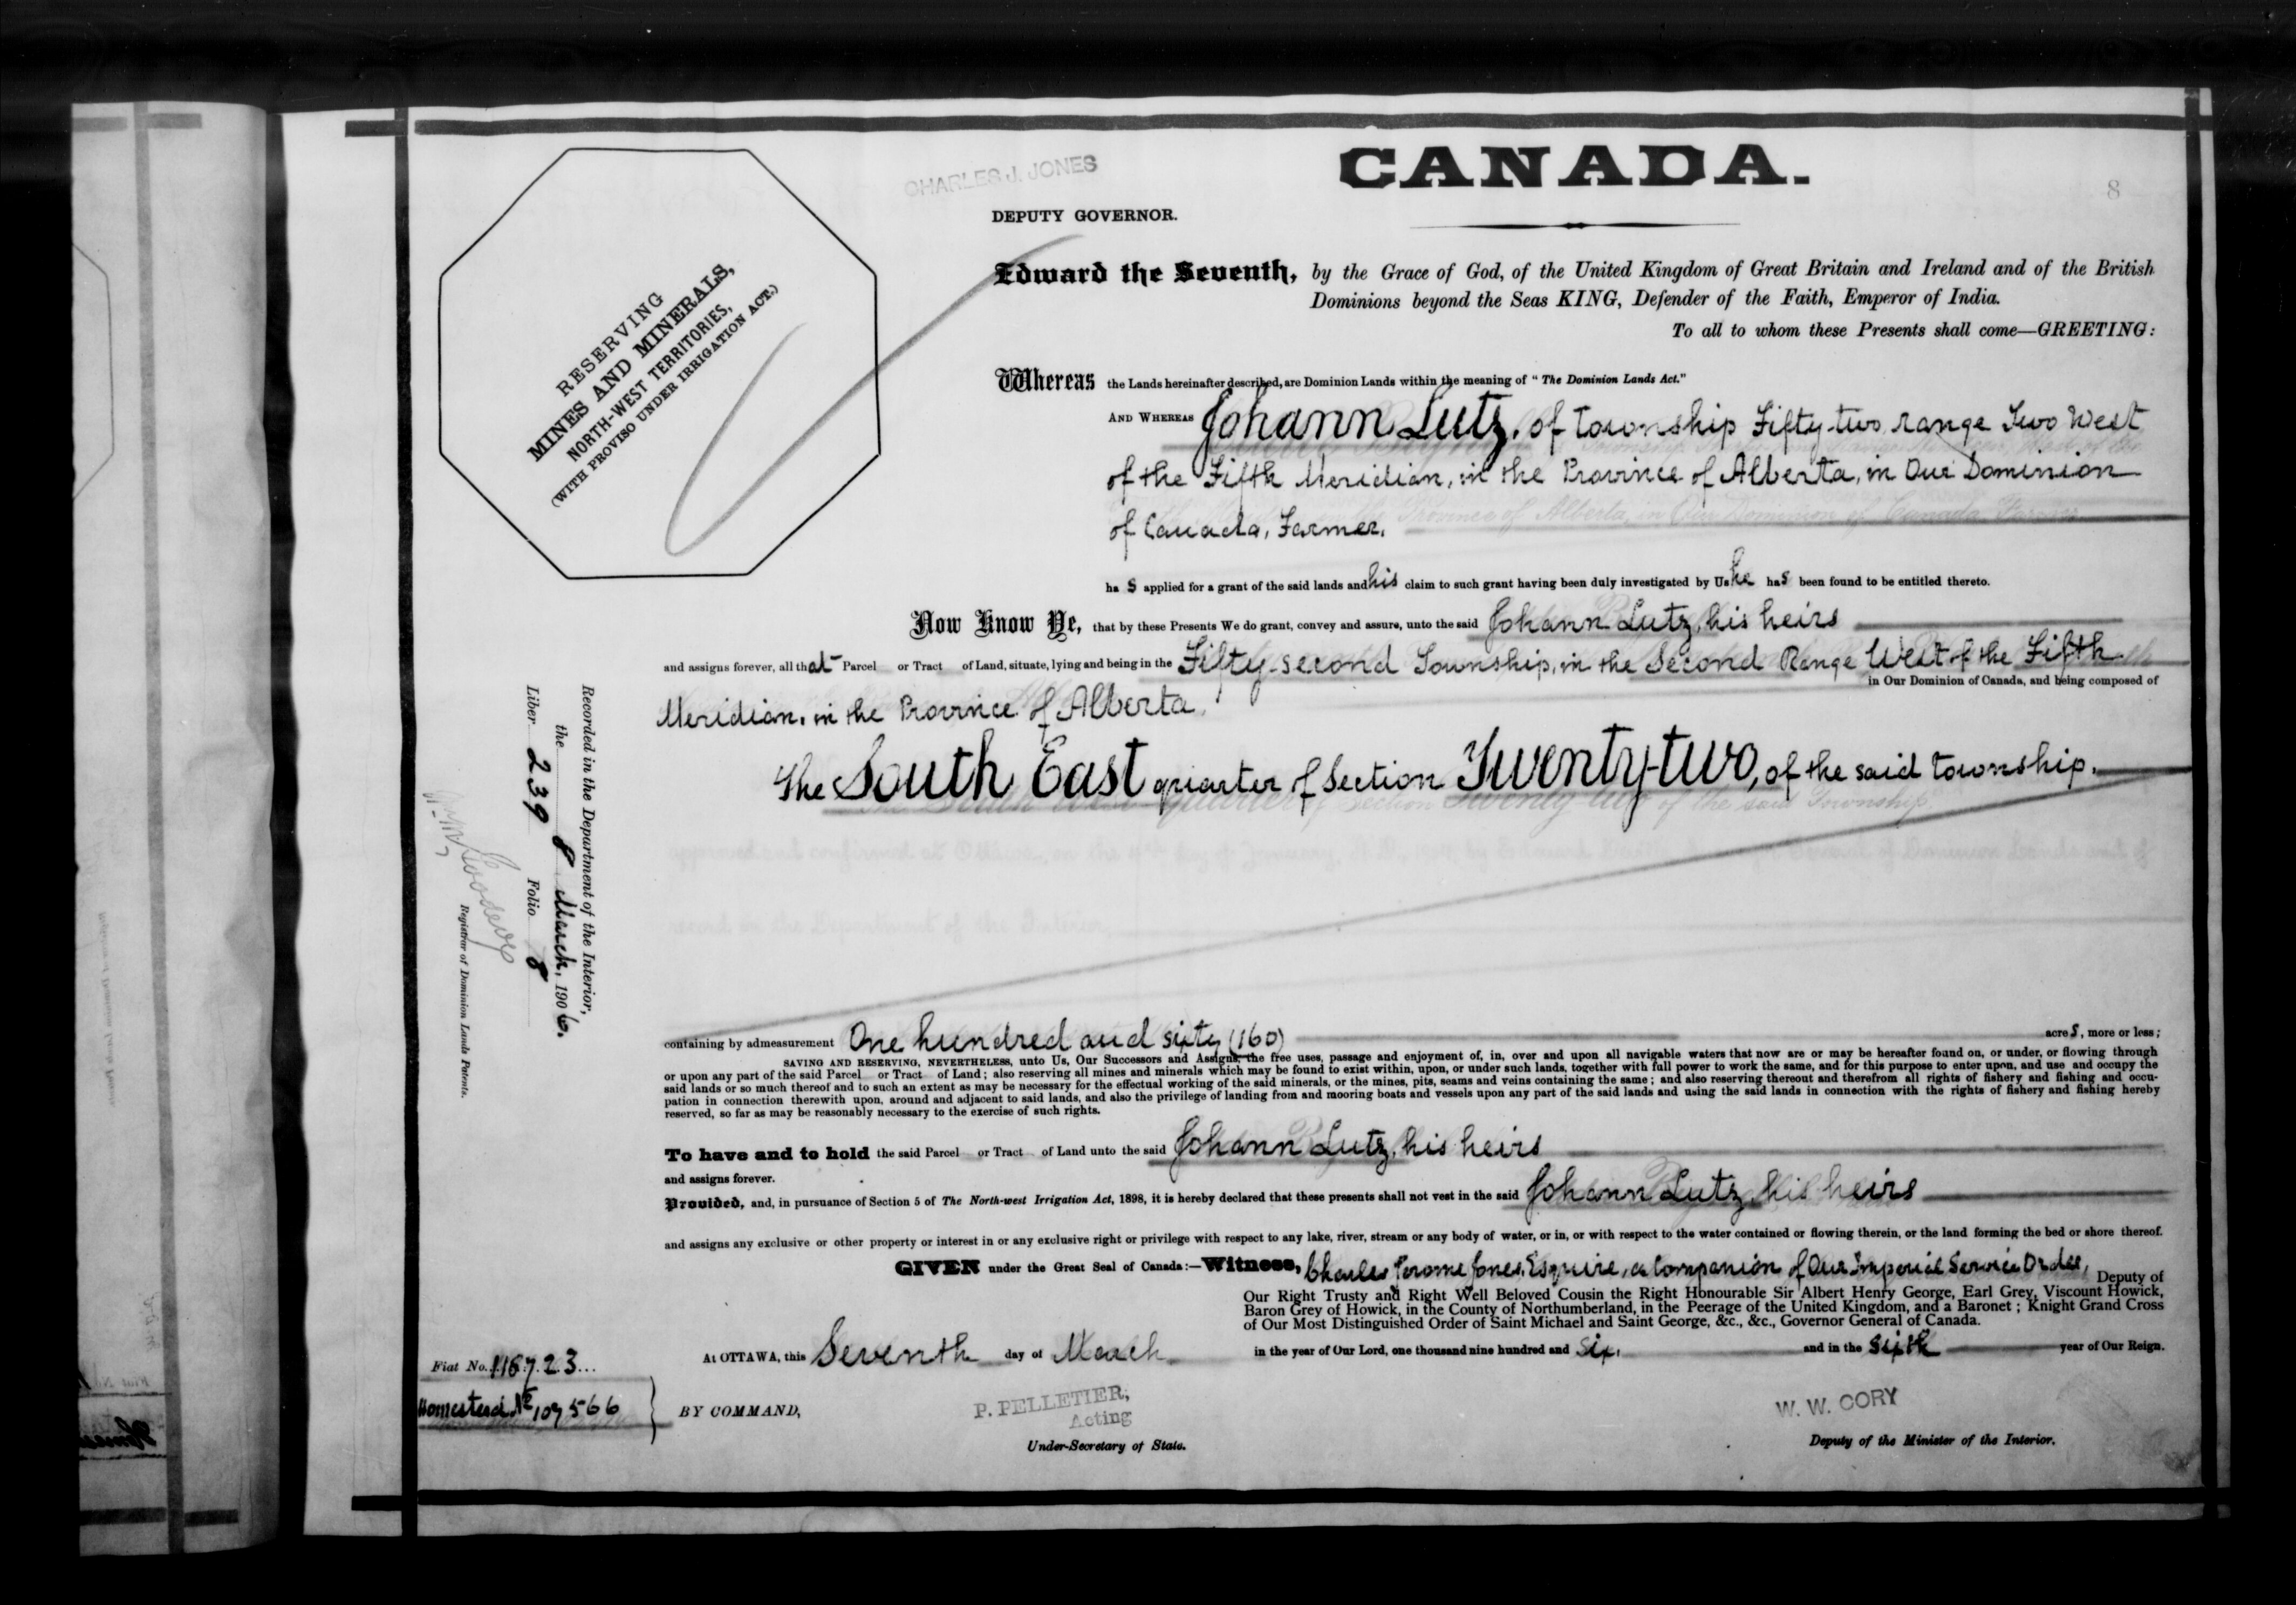 CANADA.
8
CHARLES J. JONES
DEPUTY GOVERNOR.
RESERVING
MINES AND MINERALS,
NORTH-WEST TERRITORIES,
(WITH PROVISO UNDER IRRIGATION ACT.)
Edward the Seventh, by the Grace of God, of the United Kingdom of Great Britain and Ireland and of the British
Dominions beyond the Seas KING, Defender of the Faith, Emperor of India.
To all to whom these Presents shall come—GREETING:
Whereas the Lands hereinafter described, are Dominion Lands within the meaning of "The Dominion Lands Act."
AND WHEREAS Johann Lutz, of Township Fifty-two, range Two West
of the Fifth Meridian, in the Province of Alberta, in Our Dominion
of Canada, Farmer,
has applied for a grant of the said lands and his claim to such grant having been duly investigated by Us he has been found to be entitled thereto.
Now Know Ye, that by these Presents We do grant, convey and assure, unto the said Johann Lutz, his heirs
and assigns forever, all that Parcel or Tract of Land, situate, lying and being in the Fifty-second Township, in the Second Range West of the Fifth
in Our Dominion of Canada, and being composed of
Meridian, in the Province of Alberta,
The South East quarter of Section Twenty-two, of the said township.
containing by admeasurement One hundred and sixty (160) acres, more or less;
SAVING AND RESERVING, NEVERTHELESS, unto Us, Our Successors and Assigns, the free uses, passage and enjoyment of, in, over and upon all navigable waters that now are or may be hereafter found on, or under, or flowing through
or upon any part of the said Parcel or Tract of Land; also reserving all mines and minerals which may be found to exist within, upon, or under such lands, together with full power to work the same, and for this purpose to enter upon, and use and occupy the
said lands or so much thereof and to such an extent as may be necessary for the effectual working of the said minerals, or the mines, pits, seams and veins containing the same; and also reserving thereout and therefrom all rights of fishery and fishing and occu-
pation in connection therewith upon, around and adjacent to said lands, and also the privilege of landing from and mooring boats and vessels upon any part of the said lands and using the said lands in connection with the rights of fishery and fishing hereby
reserved, so far as may be reasonably necessary to the exercise of such rights.
To have and to hold the said Parcel or Tract of Land unto the said Johann Lutz, his heirs
and assigns forever.
Provided, and, in pursuance of Section 5 of The North-west Irrigation Act, 1898, it is hereby declared that these presents shall not vest in the said Johann Lutz, his heirs
and assigns any exclusive or other property or interest in or any exclusive right or privilege with respect to any lake, river, stream or any body of water, or in, or with respect to the water contained or flowing therein, or the land forming the bed or shore thereof.
GIVEN under the Great Seal of Canada:—Witness, Charles Jerome Jones, Esquire, a Companion of Our Imperial Service Order,
Deputy of
Our Right Trusty and Right Well Beloved Cousin the Right Honourable Sir Albert Henry George, Earl Grey, Viscount Howick,
Baron Grey of Howick, in the County of Northumberland, in the Peerage of the United Kingdom, and a Baronet; Knight Grand Cross
of Our Most Distinguished Order of Saint Michael and Saint George, &c., &c., Governor General of Canada.
At OTTAWA, this Seventh day of March in the year of Our Lord, one thousand nine hundred and six, and in the sixth year of Our Reign.
Fiat No. 116723
Homestead No 107566
BY COMMAND,
P. PELLETIER,
Acting
Under-Secretary of State.
W. W. CORY
Deputy of the Minister of the Interior.
Recorded in the Department of the Interior,
the 8 March, 1906.
Liber 239 Folio 8
Registrar of Dominion Lands Patents.